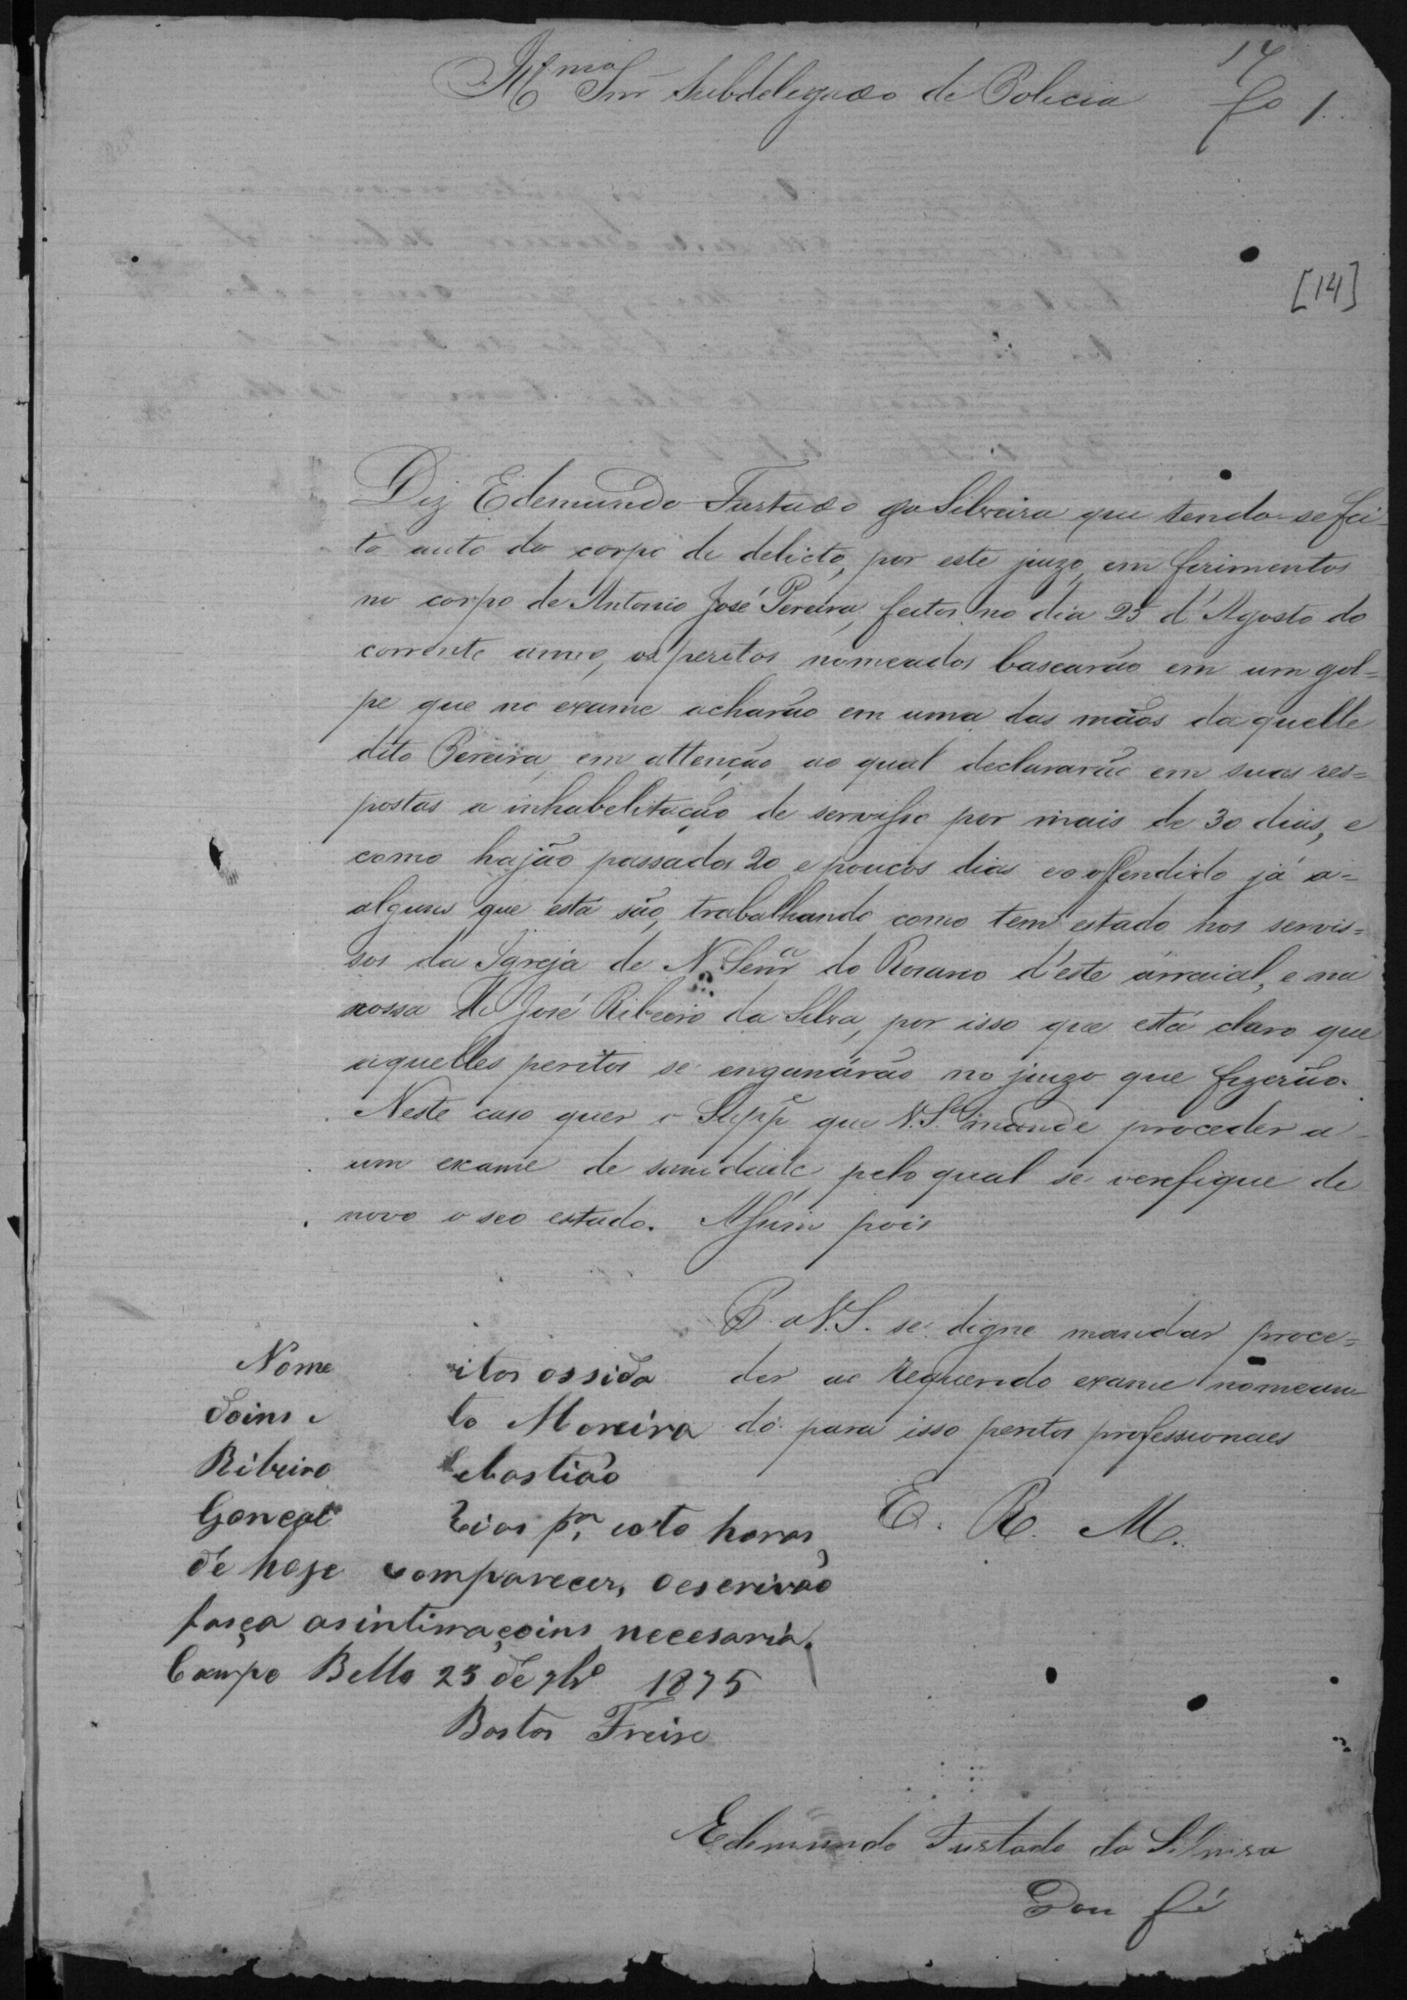 14
Illmo Snr Subdelegado de Policia fo 1.
[14]
Diz Edemundo Furtado da Silveira que tendo-se fei-
to auto do corpo de delicto, por este juizo, em ferimentos
no corpo de Antonio José Pereira, feitos no dia 25 d'Agosto do
corrente anno, os peritos nomeados bascarão em um gol=
pe que no exame acharão em uma das mãos da quelle
dito Pereira, em attenção ao qual declararão em suas res=
postas a inhabelitação de servisso por mais de 30 dias, e
como hajão passados 20 e poucos dias e o offendido já a=
alguns que está são, trabalhando como tem estado nos servis=
sos da Igreja de N. Senra do Rosario d'este arraial, e na
rossa de José Ribeiro da Silva, por isso que está claro que
aquelles peritos se enganárão no juizo que fizerão.
Neste caso quer o Suppe que V.Sa mande proceder a
um exame de sanidade pelo qual se verefique de
novo o seo estado. Assim pois
P. a V.S. se digne mandar proce=
der ao requerido exame nomean
do para isso peritos professionaes
E. R. M.
Nome itos ossida
doins to Moreira
Ribeiro Sebastião
Goncal Dias pa oito horas,
de hoje comparecer, o escrivão
fasça as intimaçoins necesaria.
Campo Bello 25 de 7bro 1875
Bastos Freire
Edemundo Furtado da Silveira
Dou fé